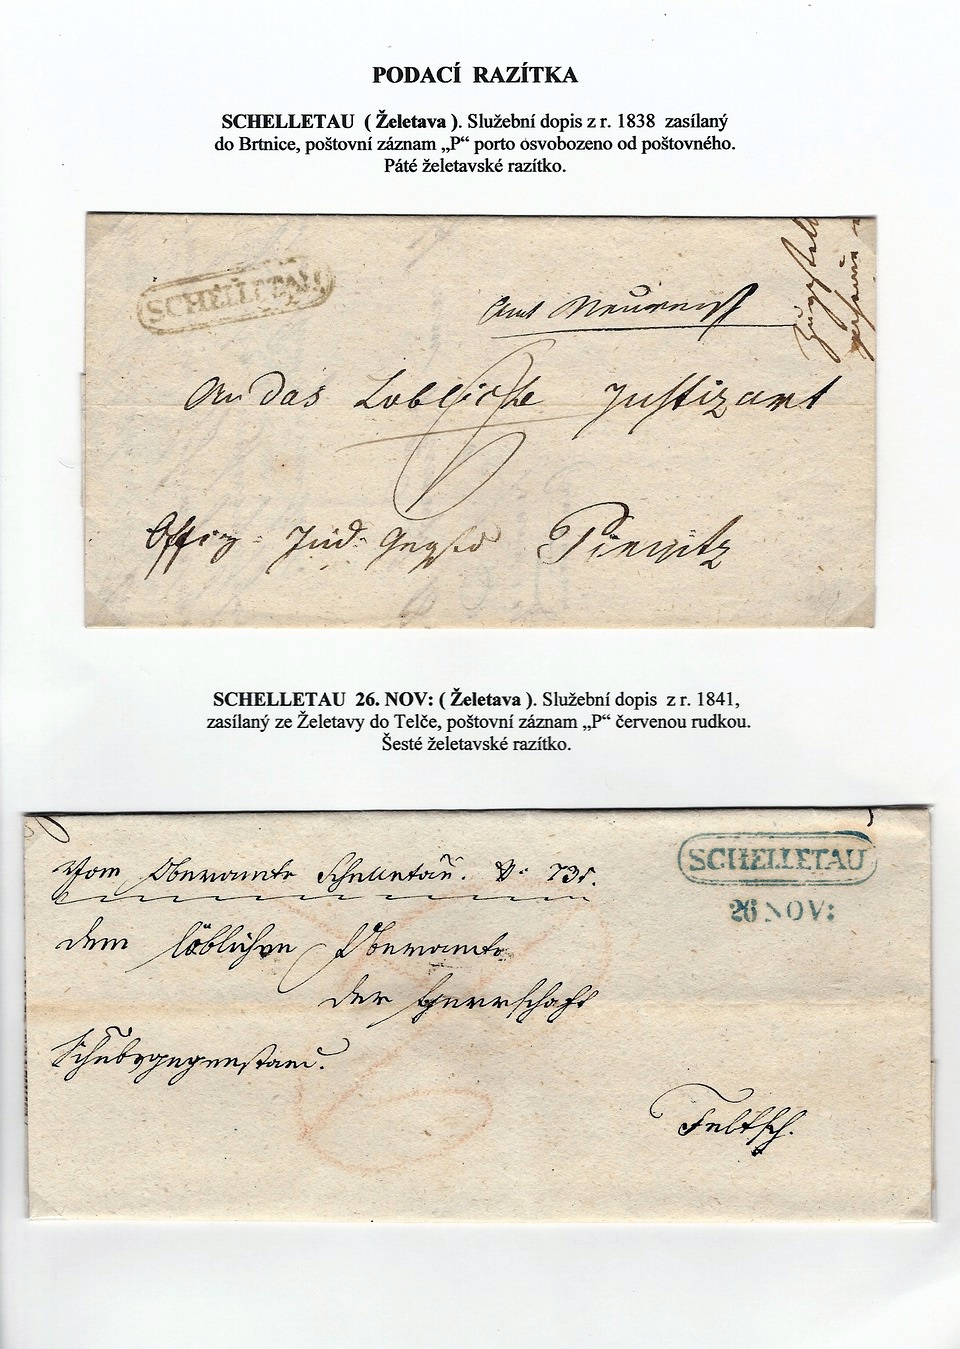 PODACÍ RAZÍTKA
SCHELLETAU ( Želetava ). Služební dopis z r. 1838 zasílaný
do Brtnice, poštovní záznam „P“ porto osvobozeno od poštovného.
Páté želetavské razítko.
SCHELLETAU
An das Lobliche Justizamt
Pirnitz
SCHELLETAU 26. NOV: ( Želetava ). Služební dopis z r. 1841,
zasílaný ze Želetavy do Telče, poštovní záznam „P“ červenou rudkou.
Šesté želetavské razítko.
SCHELLETAU
26 NOV:
Vom Oberamte Schelletau.
dem löblichen Oberamte
der Herrschaft
Teltsch.